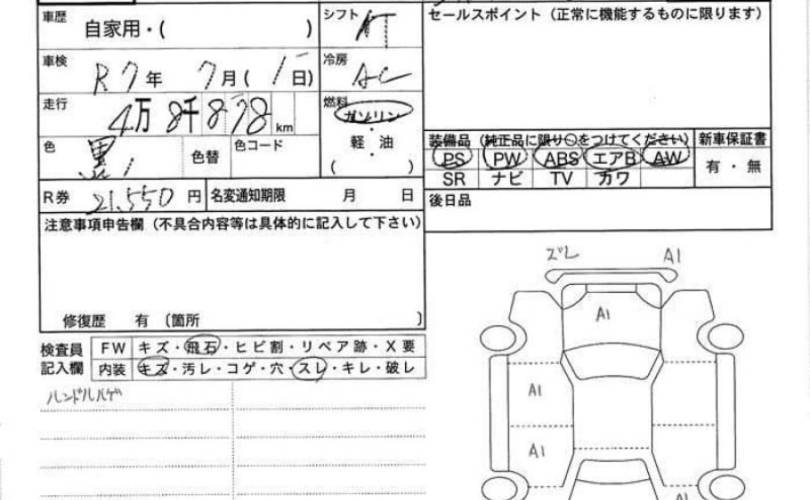 車歴 自家用・( ) シフト AT セールスポイント (正常に機能するものに限ります)
車検 R7年 7月(1日) 冷房 AC
走行 4万8千878km 燃料 ガソリン・軽油( )
色 黒 色替 色コード
装備品 (純正品に限り○をつけてください) 新車保証書
PS PW ABS エアB AW 有・無
SR ナビ TV カワ
R券 21,550円 名変通知期限 月 日 後日品
注意事項申告欄 (不具合内容等は具体的に記入して下さい)
修復歴 有 (箇所 )
検査員記入欄 FW キズ・飛石・ヒビ割・リペア跡・X要
内装 キズ・汚レ・コゲ・穴・スレ・キレ・破レ
ハンドルハゲ
ズレ A1
A1
A1
A1
A1